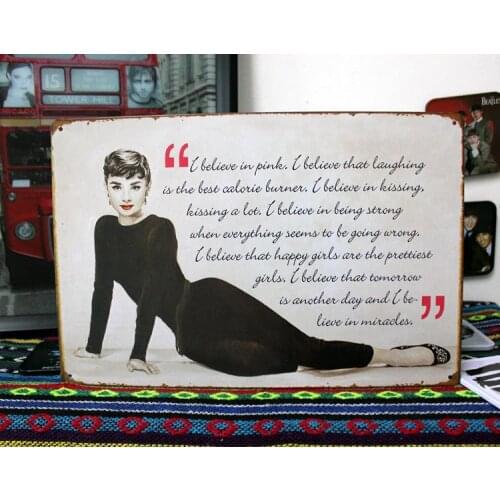 15
TOWER HILL
BEATLES
“I believe in pink. I believe that laughing
is the best calorie burner. I believe in kissing,
kissing a lot. I believe in being strong
when everything seems to be going wrong.
I believe that happy girls are the prettiest
girls. I believe that tomorrow
is another day and I be-
lieve in miracles.”